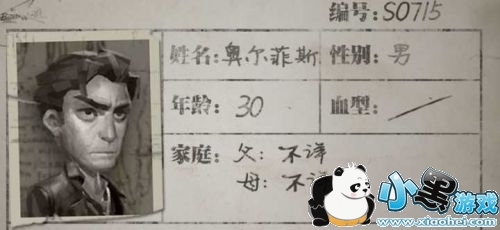 编号: S0715
姓名: 奥尔菲斯 性别: 男
年龄: 30 血型:
家庭: 父: 不详
母: 不详
小黑游戏
www.xiaohei.com